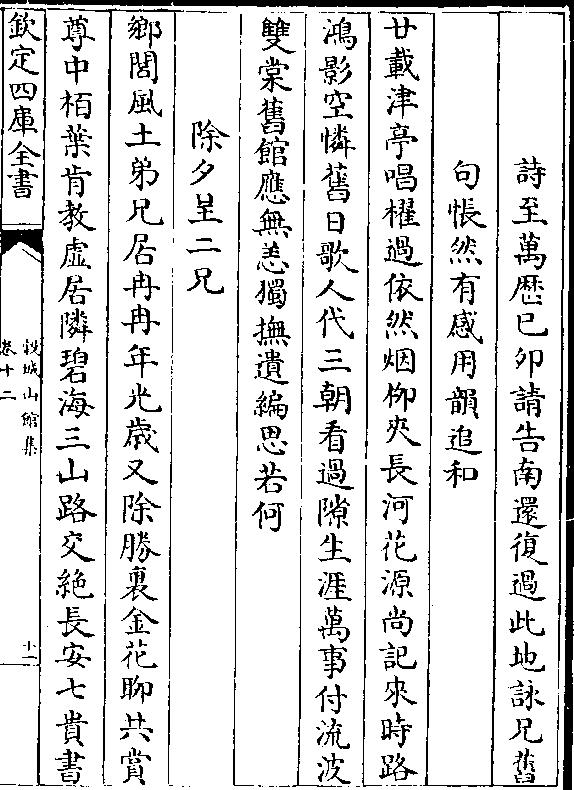 詩至萬歴已夘請告南還復過此地詠兄舊
句悵然有感用韻追和
廿載津亭唱櫂過依然烟柳夾長河花源尚記來時路
鴻影空憐舊日歌人代三朝看過隙生涯萬事付流波
雙棠舊館應無恙獨撫遺編思若何
除夕呈二兄
鄉閭風土弟兄居冉冉年光歳又除勝裏金花聊共賞
尊中栢葉肯教虛居隣碧海三山路交絶長安七貴書
欽定四庫全書
榖城山館集
卷十二
十二